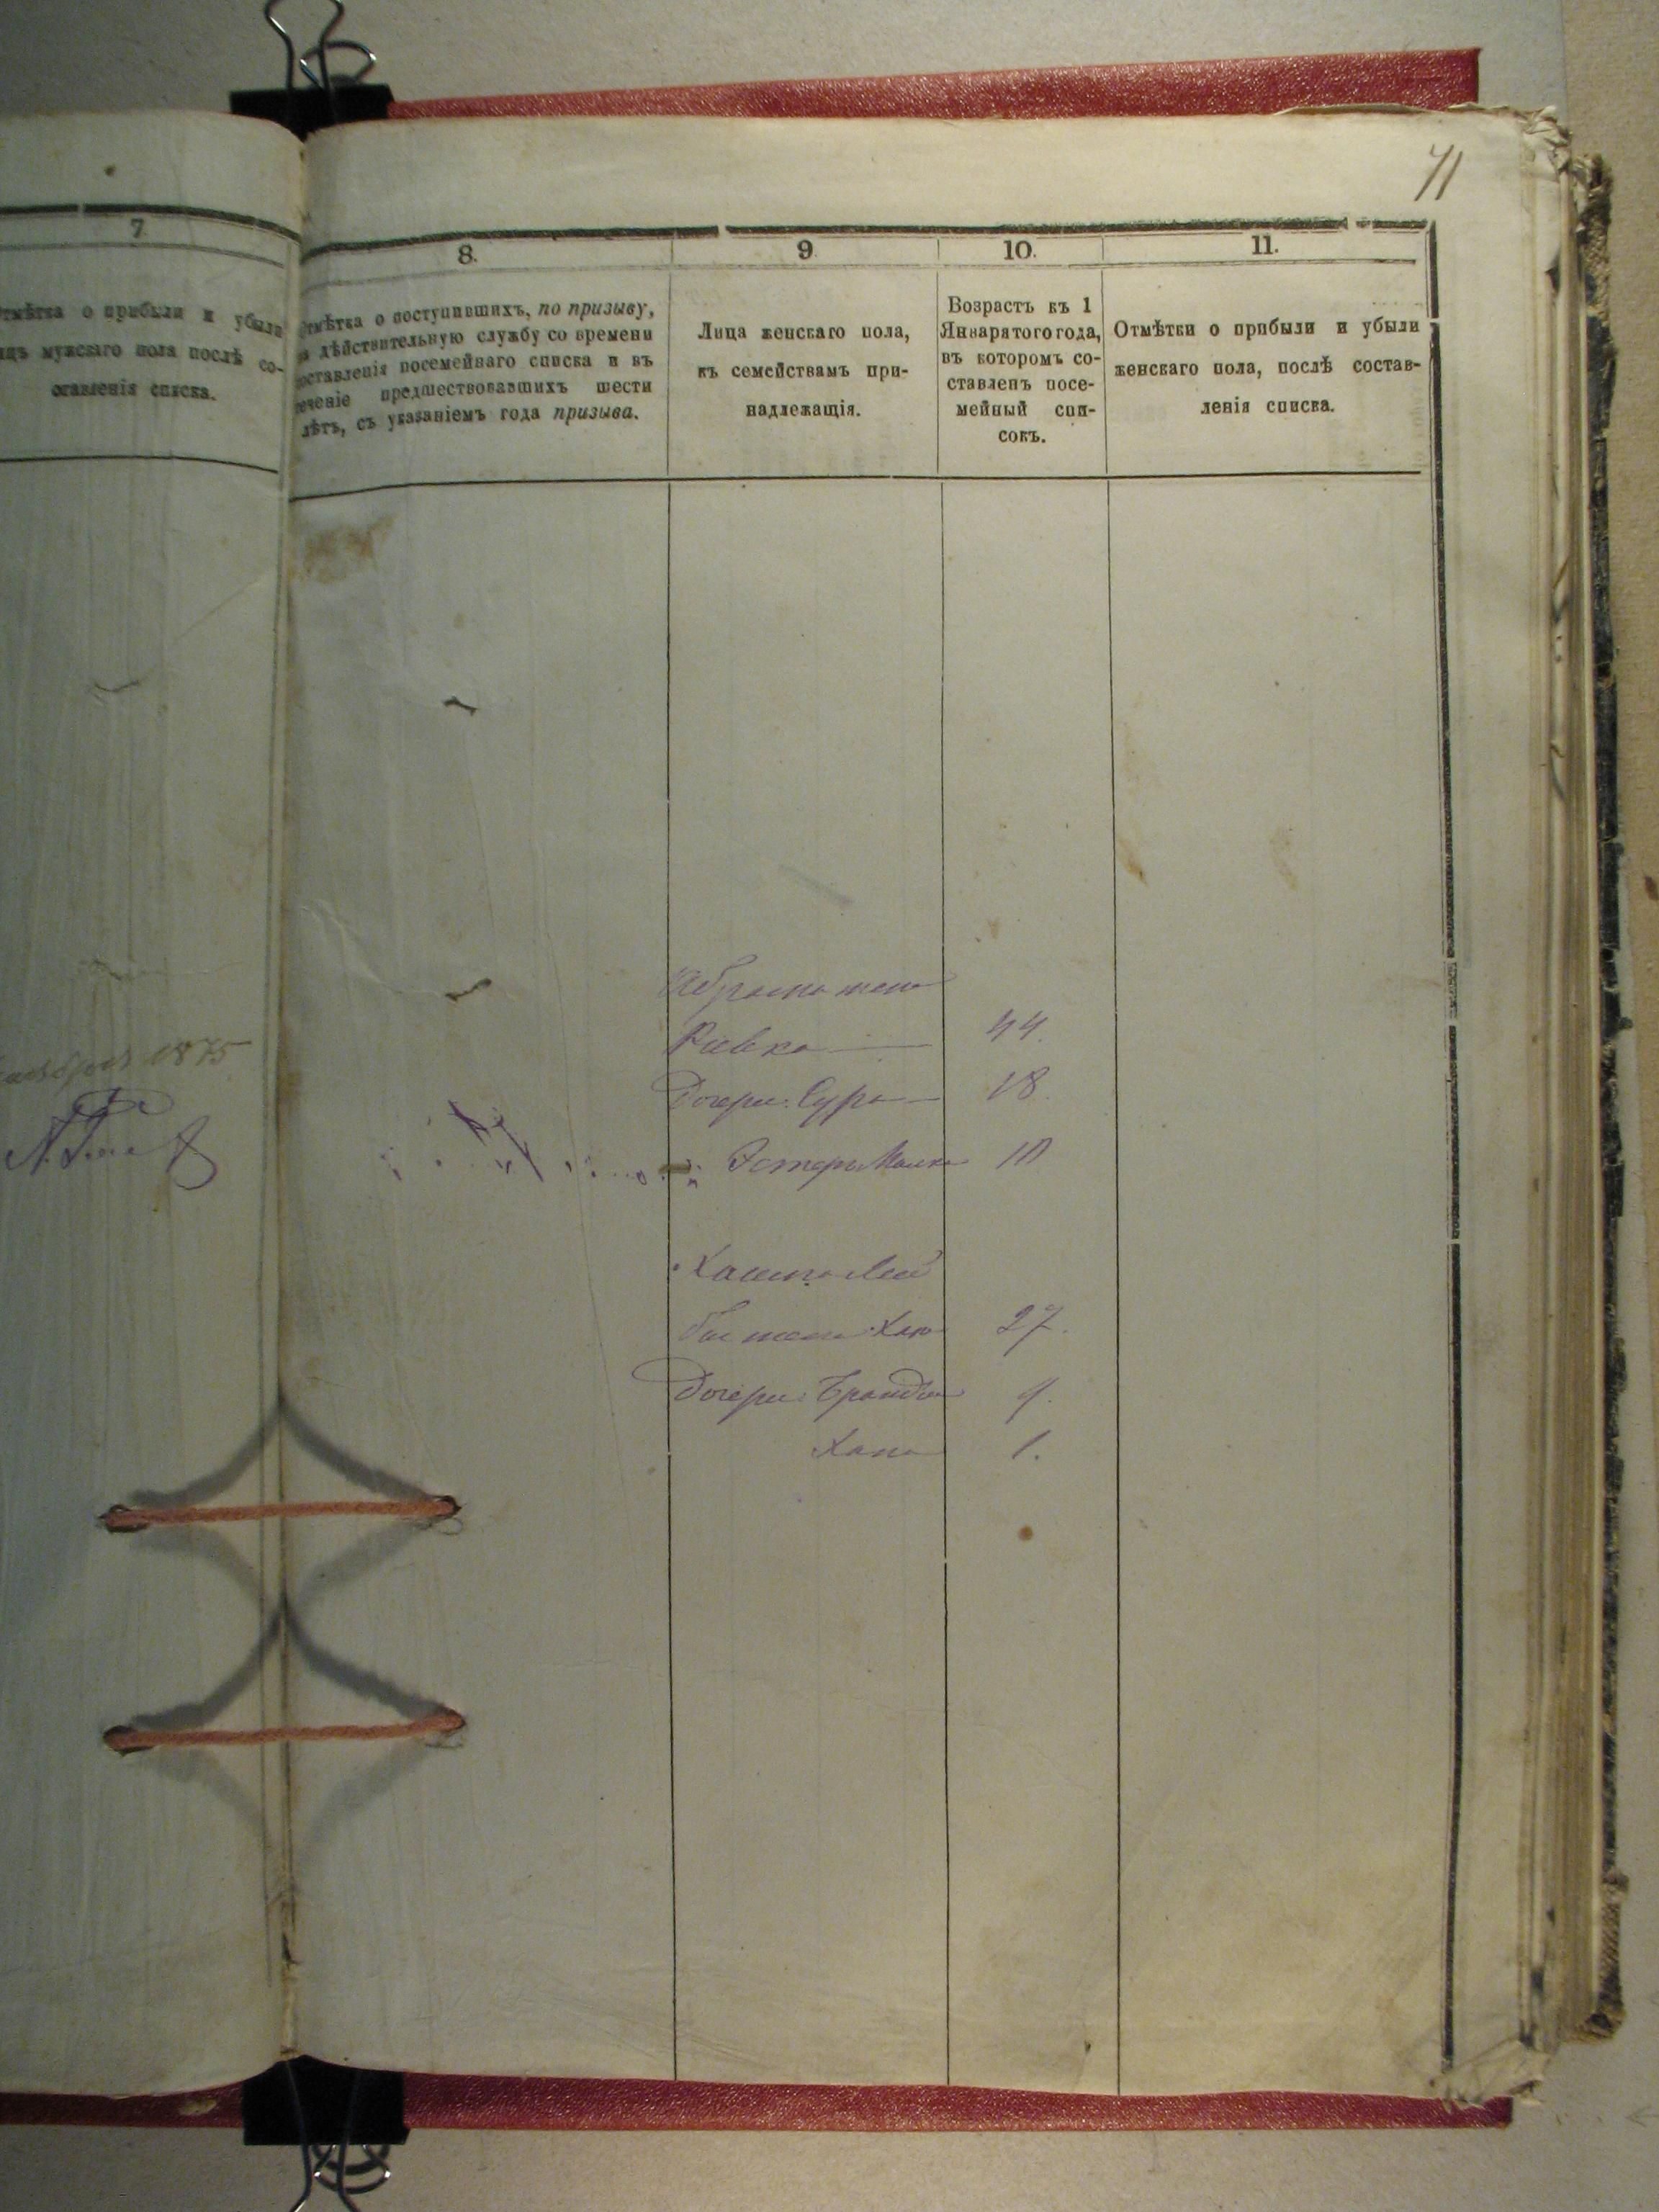 71
7
убыли
мужскаго пола послѣ со-
ставленія списка.
8.
Отмѣтка о поступившихъ, по призыву,
дѣйствительную службу со времени
составленія посемейнаго списка и въ
теченіе предшествовавшихъ шести
лѣтъ, съ указаніемъ года призыва.
9
Лица женскаго пола,
къ семействамъ при-
надлежащія.
10.
Возрастъ къ 1
Января того года,
въ которомъ со-
ставленъ посе-
мейный спи-
сокъ.
11.
Отмѣтки о прибыли и убыли
женскаго пола, послѣ состав-
ленія списка.
1875
Абрама жена
Ривка 44.
Дочери: Сура 18.
Эстеръ Малка 10
Хаима Лей
бы жена Хая 27.
Дочери: Брандля 9.
Хана 1.